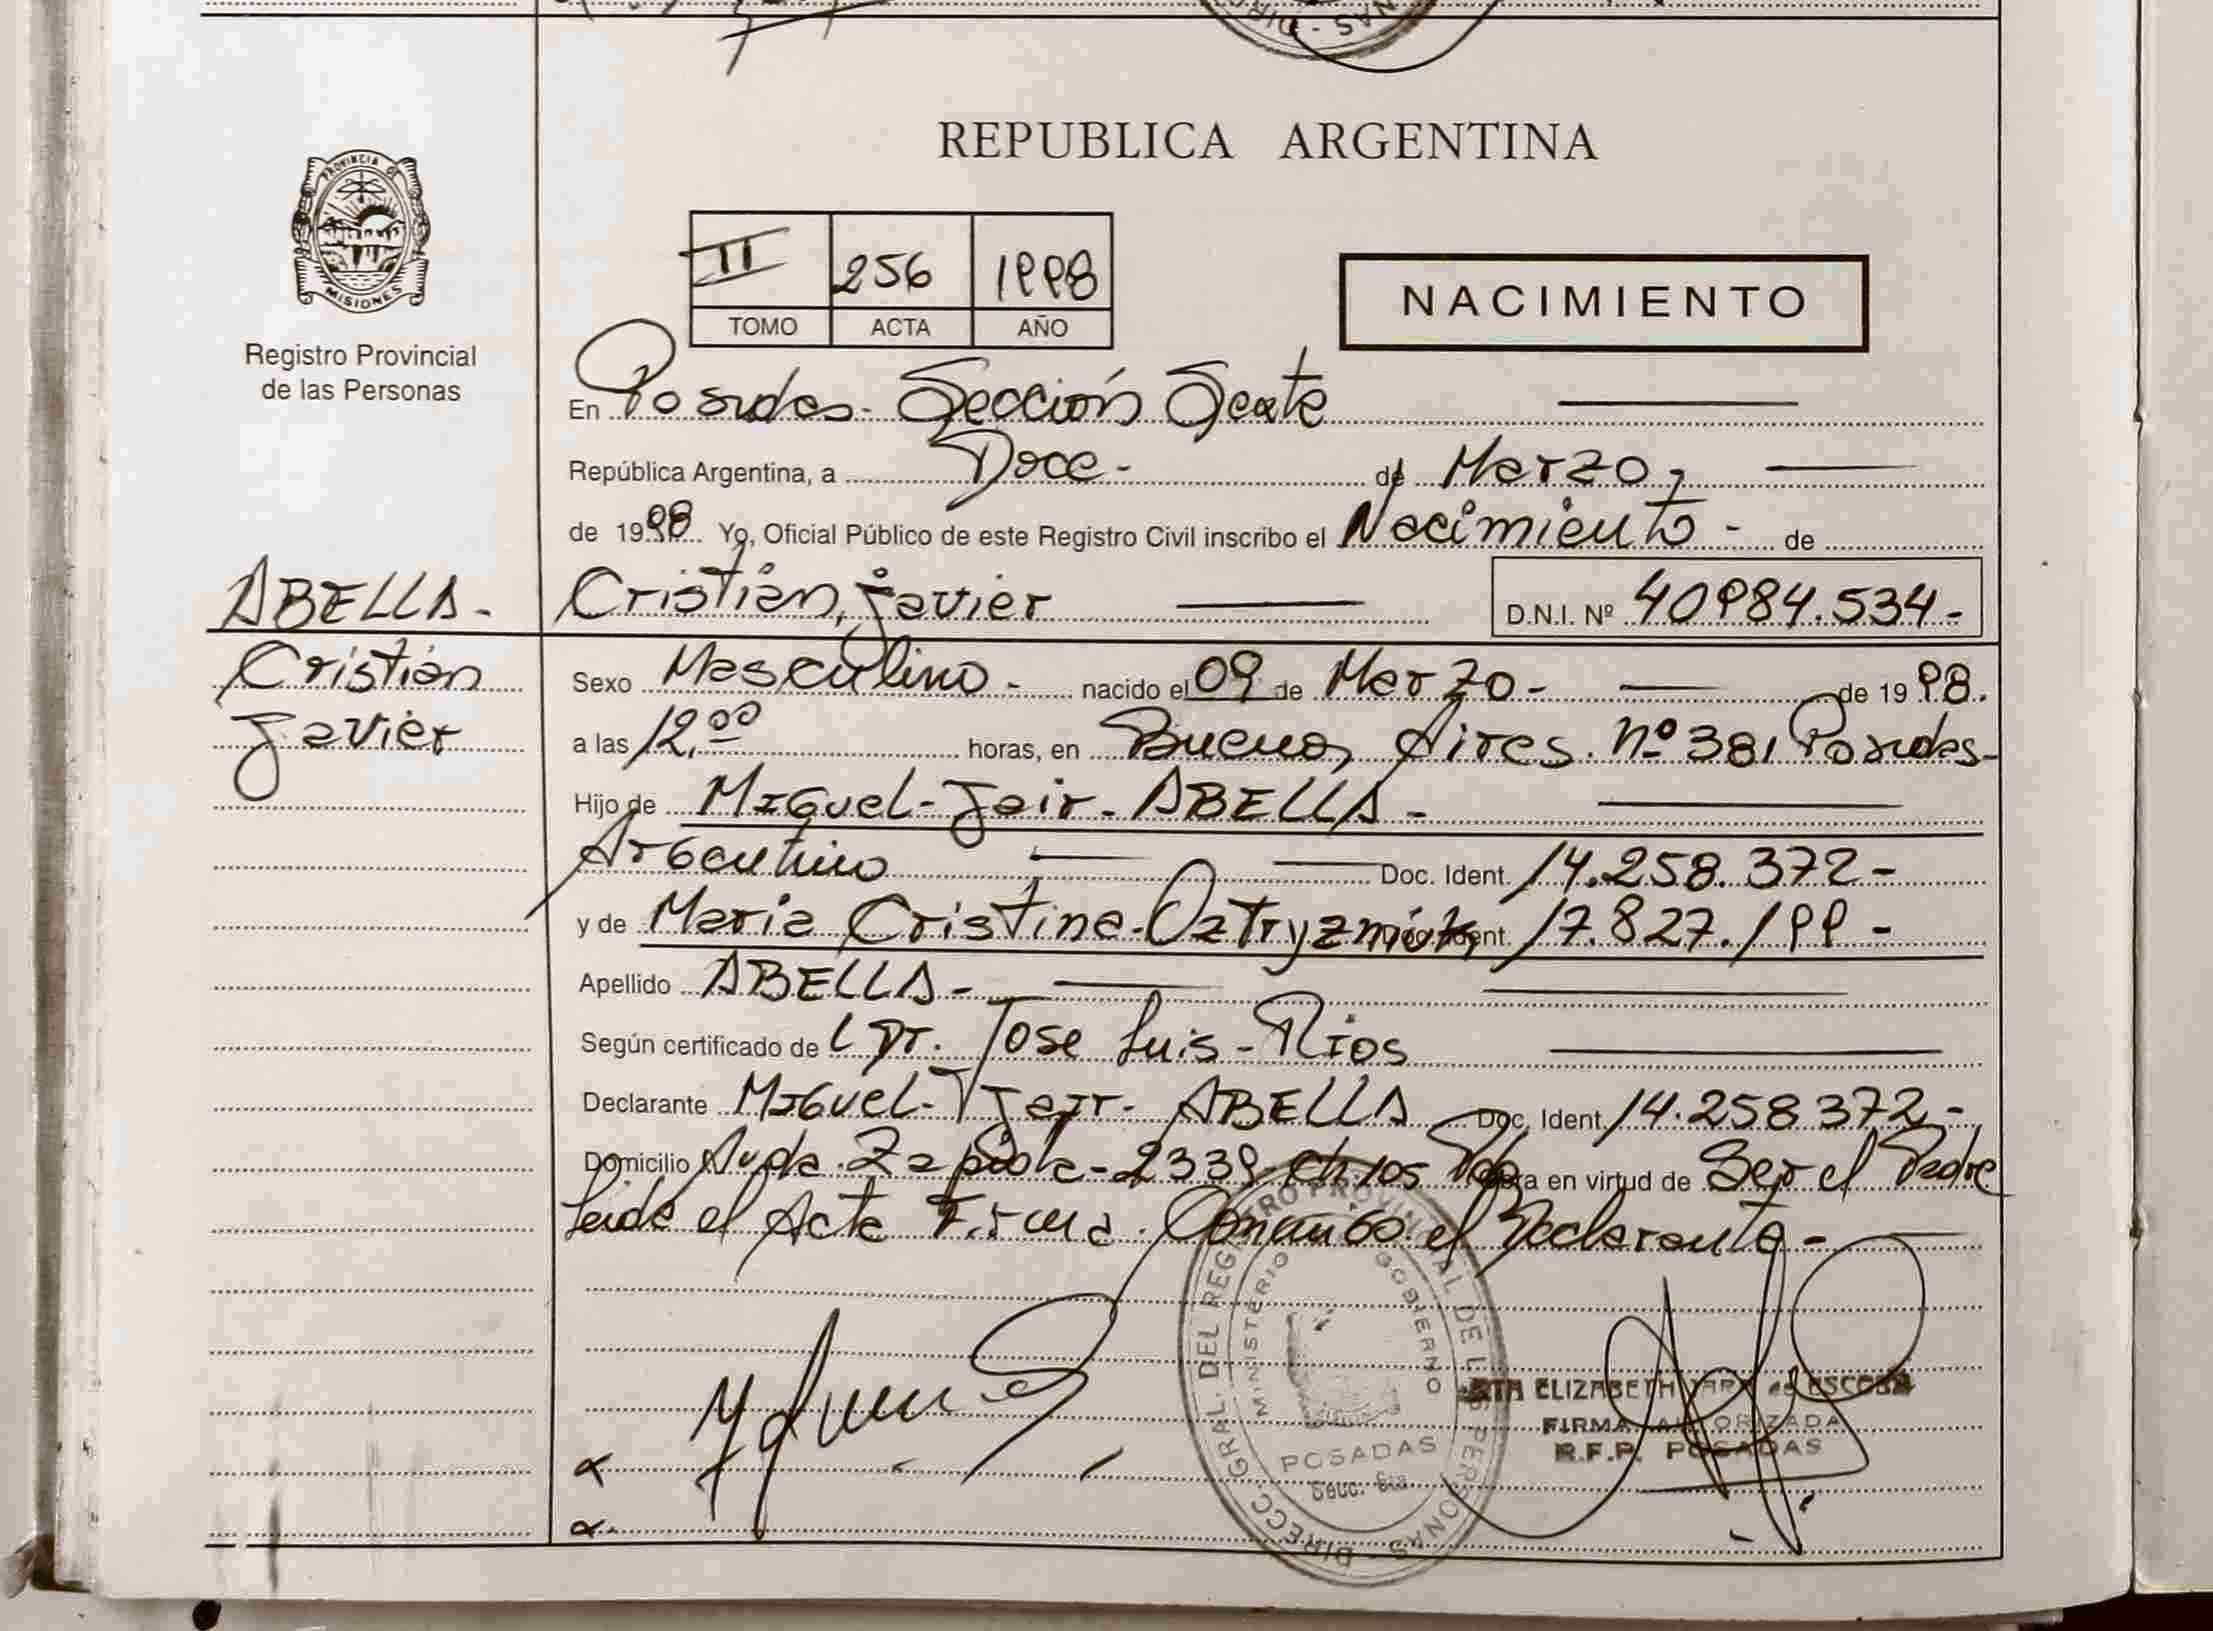 REPUBLICA ARGENTINA
PROVINCIA DE
MISIONES
Registro Provincial
de las Personas
II 256 1998
TOMO ACTA AÑO
NACIMIENTO
En Posadas - Sección Sexta
República Argentina, a Doce - de Marzo,
de 1998 Yo, Oficial Público de este Registro Civil inscribo el Nacimiento - de
ABELLA - Cristian, Javier D.N.I. Nº 40984.534-
Cristian
Javier
Sexo Masculino - nacido el 09 de Marzo - de 1998.
a las 12.00 horas, en Buenos Aires. nº 381 Posadas-
Hijo de Miguel - Jair - ABELLA -
Argentino Doc. Ident. 14.258.372-
y de Maria Cristina - Doc. Ident. 17.827.199 -
Apellido ABELLA -
Según certificado de Dr. Jose Luis - Rios
Declarante Miguel - Jair - ABELLA Doc. Ident. 14.258372-
Domicilio Avda. Zapiola - 2339 en virtud de Ser el Padre
Leida el Acta Firma Conmigo el Declarante -
DIRECC. GRAL. DEL REGISTRO PROVINCIAL DE LAS PERSONAS
MINISTERIO GOBIERNO
POSADAS
Secc. 6ta
ELIZABETH de ESCOBAR
FIRMA AUTORIZADA
POSADAS